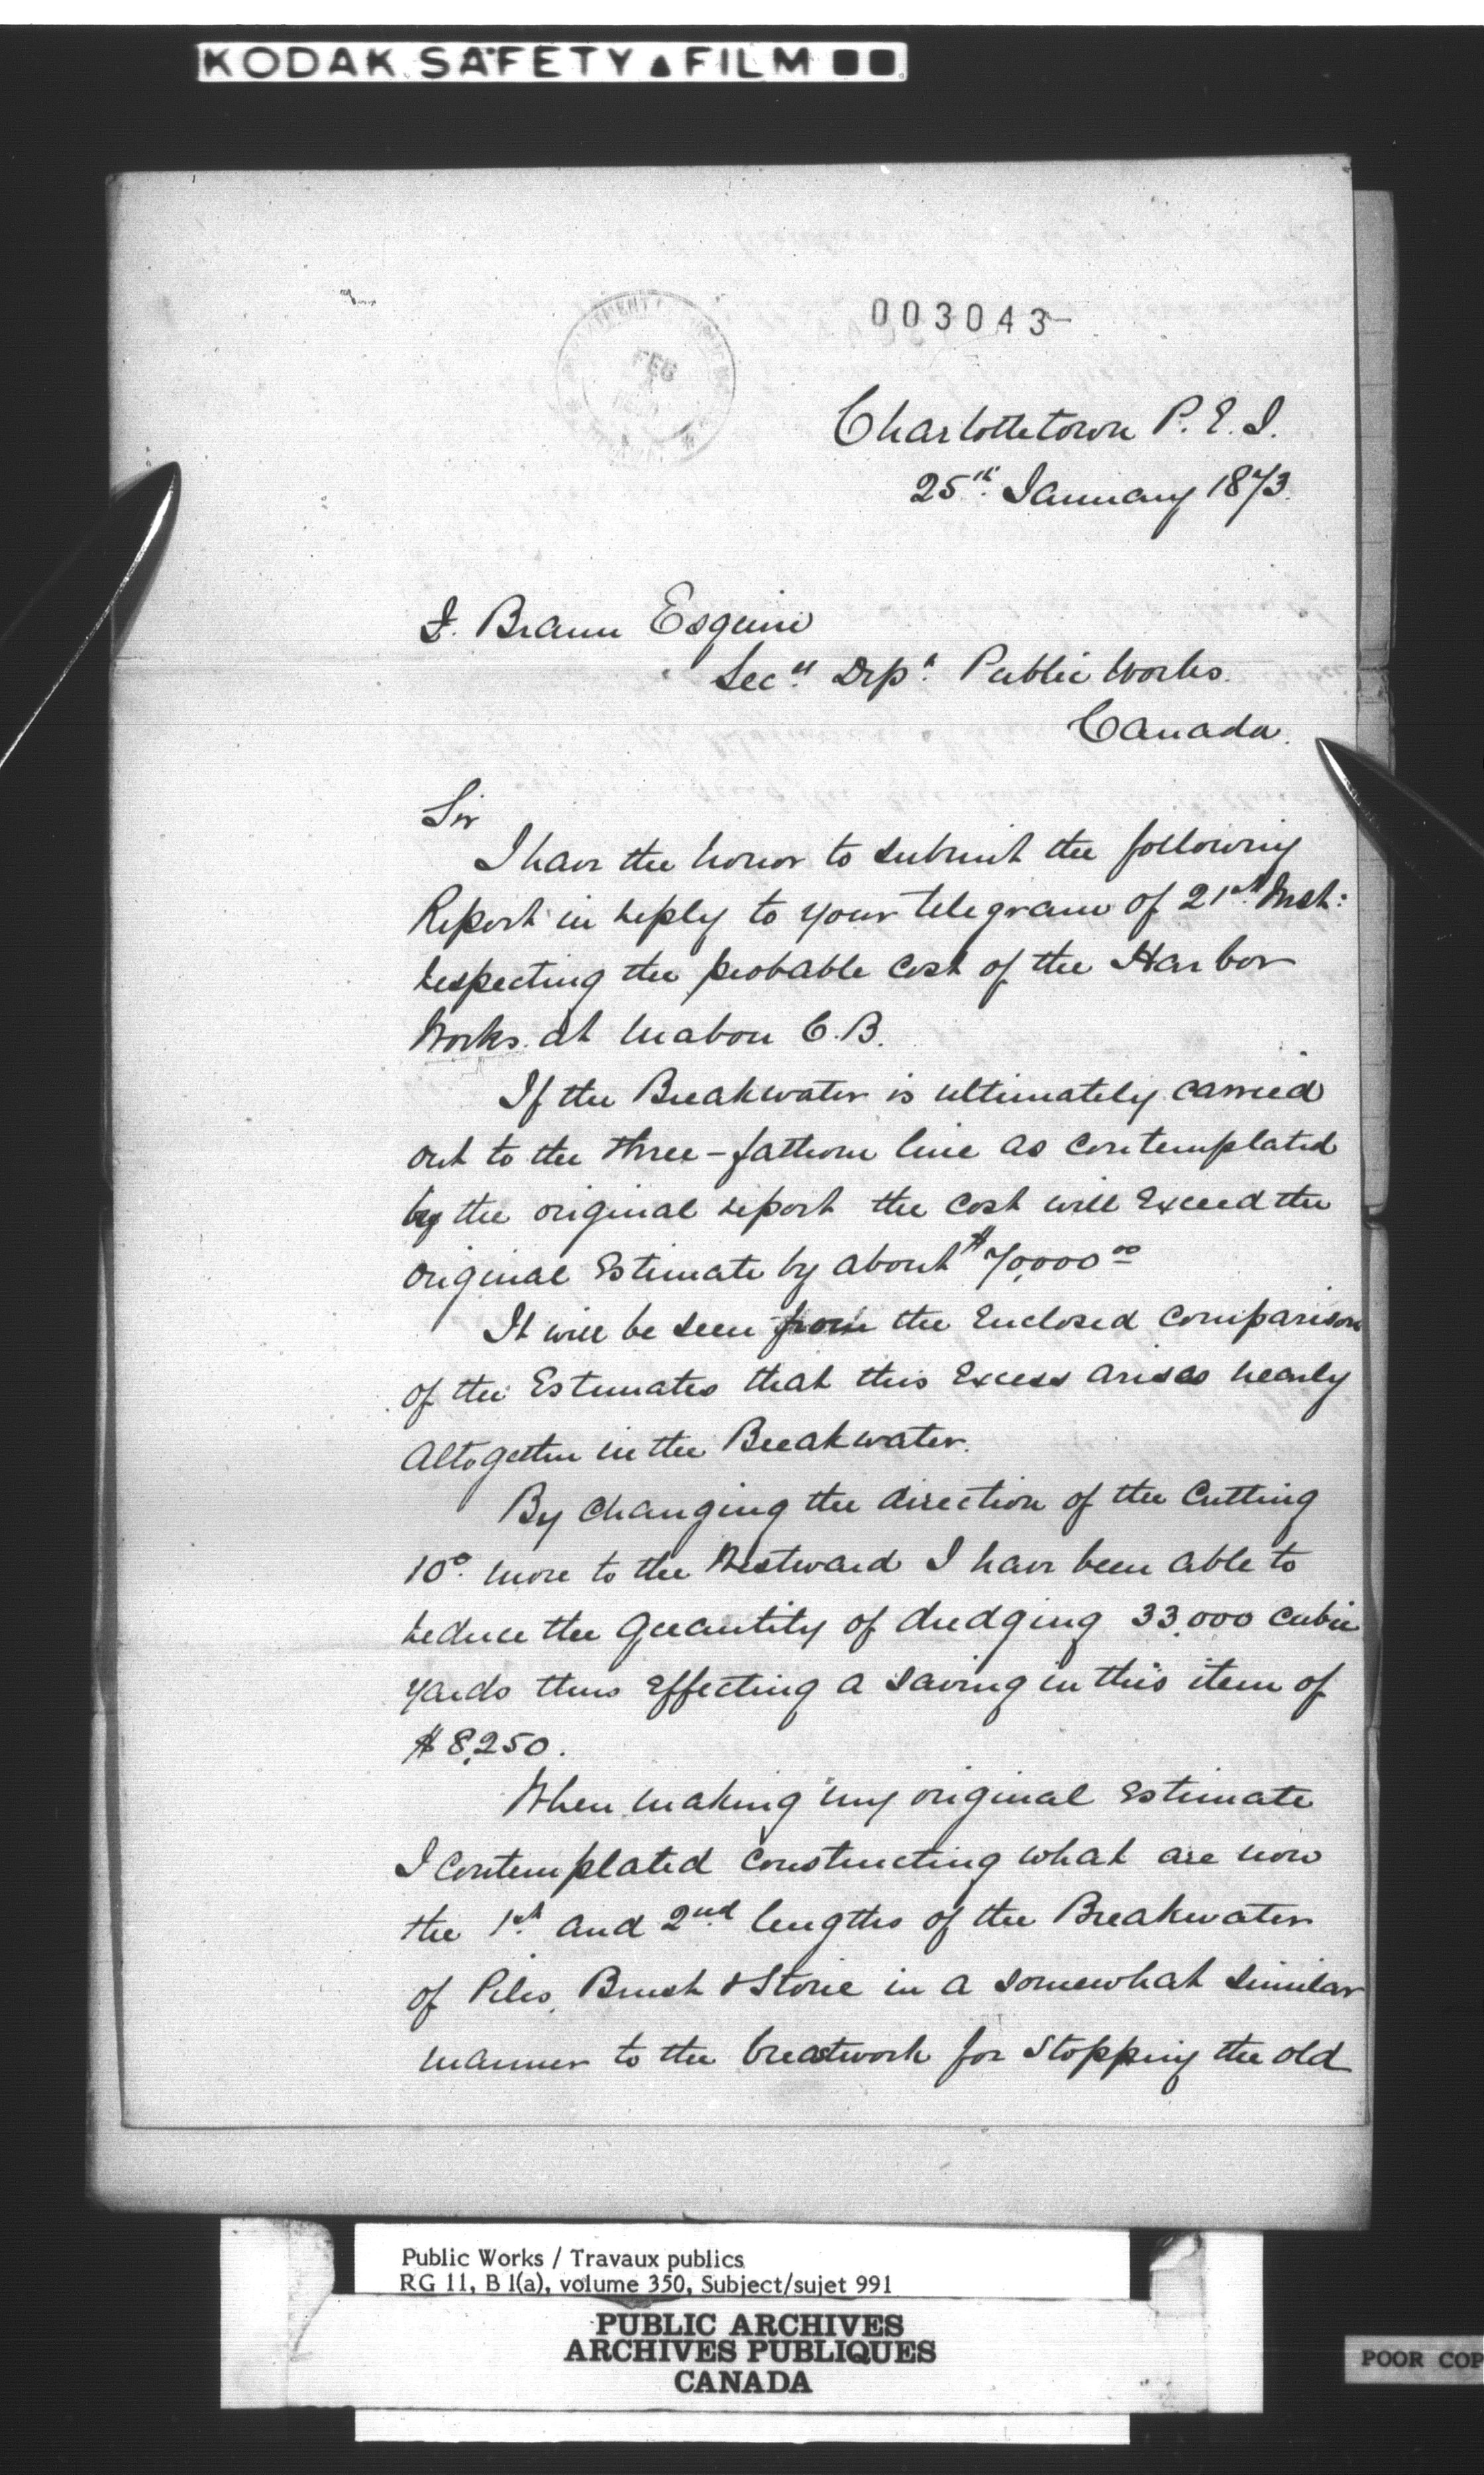 KODAK SAFETY FILM
003043
FEB
Charlottetown P. E. I.
25th January 1873.
F. Braun Esquire
Secy Dept Public Works.
Canada.
Sir
I have the honor to submit the following
Report in reply to your telegram of 21st Inst:
respecting the probable cost of the Harbor
Works at Mabou C. B.
If the Breakwater is ultimately carried
out to the three-fathom line as contemplated
by the original report the cost will exceed the
original Estimate by about $70,000 00
It will be seen from the Enclosed comparison
of the Estimates that this Excess arises nearly
altogether in the Breakwater.
By changing the direction of the Cutting
10° more to the Westward I have been able to
reduce the quantity of dredging 33,000 cubic
yards thus Effecting a saving in this item of
$8,250.
When making my original Estimate
I contemplated constructing what are now
the 1st and 2nd lengths of the Breakwater
of Piles, Brush & Stone in a somewhat similar
manner to the breastwork for stopping the old
Public Works / Travaux publics
RG 11, B 1(a), volume 350, Subject/sujet 991
PUBLIC ARCHIVES
ARCHIVES PUBLIQUES
CANADA
POOR COP